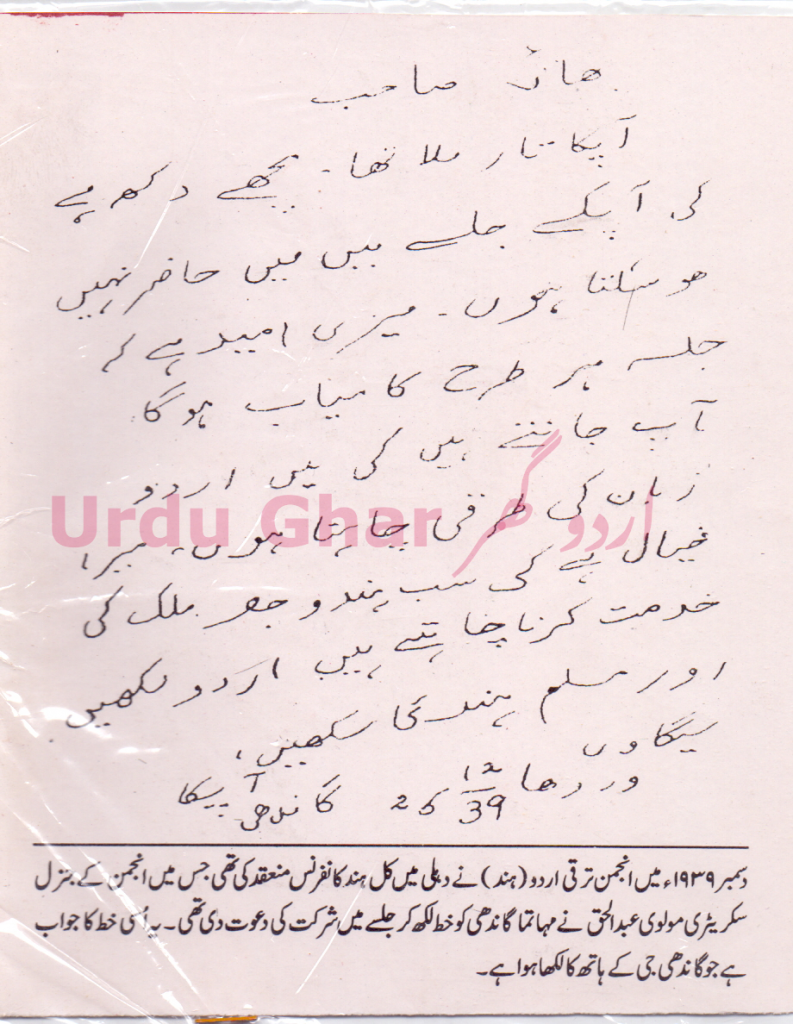 بھائی صاحب
آپکا تار ملا تھا۔ مجھے دکھ ہے
کی آپکے جلسے میں میں حاضر نہیں
ہو سکتا ہوں۔ میری امید ہے کہ
جلسہ ہر طرح کامیاب ہوگا۔
آپ جانتے ہیں کی میں اردو
زبان کی طرقی چاہتا ہوں۔ میرا
خیال ہے کی سب ہندو جو ملک کی
خدمت کرنا چاہتے ہیں اردو لکھیں
اور مسلم ہندی سکھیں۔
سیگاوں
وردھا 25 12/39 آپکا
گاندھی
Urdu Ghar اردو گھر
دسمبر ۱۹۳۹ء میں انجمن ترقی اردو (ہند) نے دہلی میں کل ہند کانفرنس منعقد کی تھی جس میں انجمن کے جنرل
سکریٹری مولوی عبدالحق نے مہاتما گاندھی کو خط لکھ کر جلسے میں شرکت کی دعوت دی تھی۔ یہ اُسی خط کا جواب
ہے جو گاندھی جی کے ہاتھ کا لکھا ہوا ہے۔